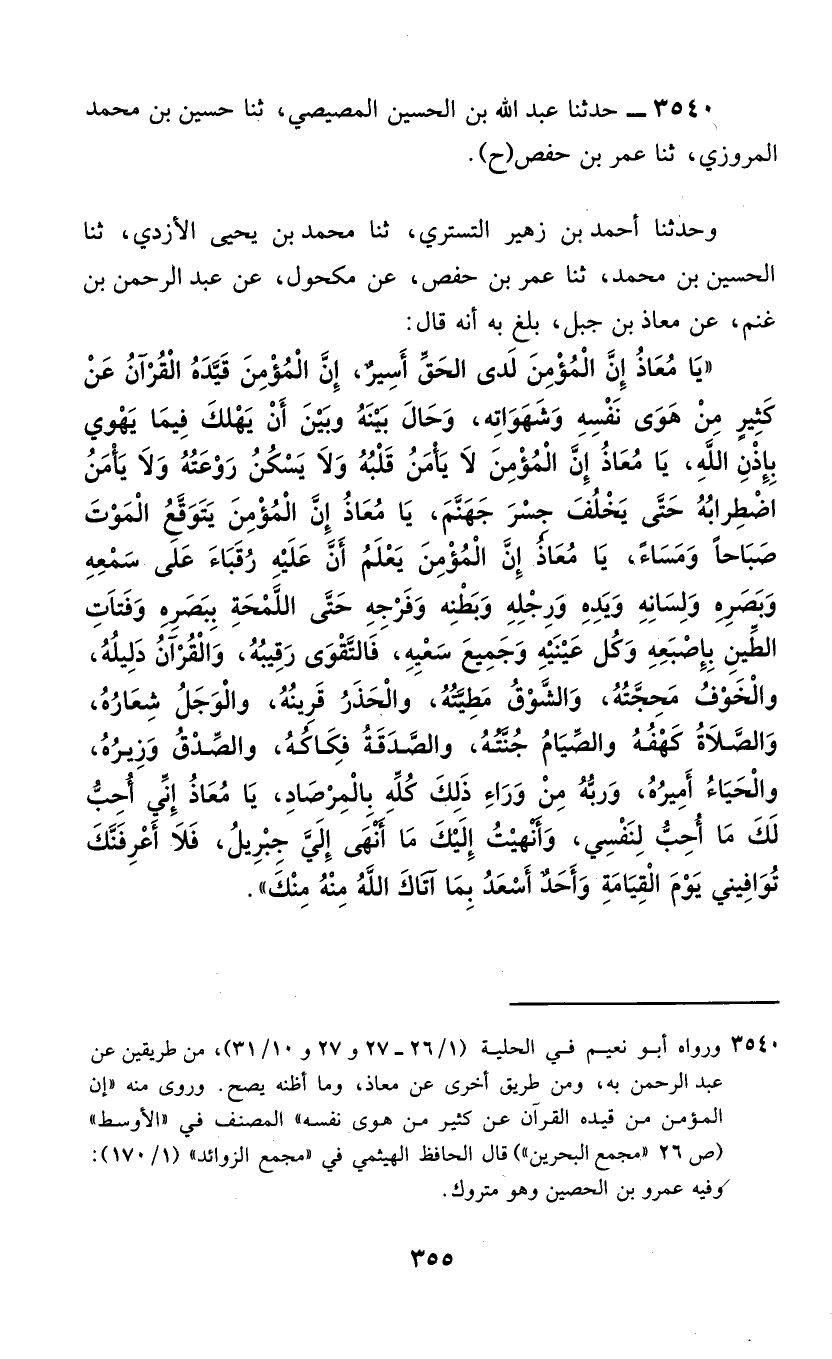 ٣٥٤٠ ــ حدثنا عبد الله بن الحسين المصيصي، ثنا حسين بن محمد
المروزي، ثنا عمر بن حفص(ح).
وحدثنا أحمد بن زهير التستري، ثنا محمد بن يحيى الأزدي، ثنا
الحسين بن محمد، ثنا عمر بن حفص، عن مكحول، عن عبد الرحمن بن
غنم، عن معاذ بن جبل، بلغ به أنه قال:
«يَا مُعَاذُ إِنَّ الْمُؤْمِنَ لَدى الحَقِّ أَسِيرٌ، إِنَّ الْمُؤْمِنَ قَيَّدَهُ الْقُرْآنُ عَنْ
كَثِيرٍ مِنْ هَوَى نَفْسِهِ وَشَهَوَاتِه، وَحَالَ بَيْنَهُ وبَيْنَ أَنْ يَهْلكَ فِيمَا يَهْوِي
بِإِذْنِ اللَّهِ، يَا مُعَاذُ إِنَّ الْمُؤْمِنَ لاَ يَأْمَنُ قَلْبُهُ وَلاَ يَسْكُنُ رَوْعَتُهُ وَلاَ يَأْمَنُ
اضْطِرابُهُ حَتَّى يَخْلُفَ جِسْرَ جَهَنَّمَ، يَا مُعَاذُ إِنَّ الْمُؤْمِنَ يَتَوَقَّعُ الْمَوْتَ
صَبَاحاً وَمَسَاءً، يَا مُعَاذُ إِنَّ الْمُؤْمِنَ يَعْلَمُ أَنَّ عَلَيْهِ رُقَبَاءَ عَلَى سَمْعِهِ
وَبَصَرِهِ وَلِسَانِهِ وَيَدِهِ وَرِجْلِهِ وَبَطْنِه وَفَرْجِهِ حَتَّى اللَّمْحَةِ بِبَصَرِهِ وَفَتَاتِ
الطِّينِ بِإِصْبَعِهِ وَكُل عَيْنَيْهِ وَجَمِيعَ سَعْيِهِ، فَالتَّقْوَى رَقِيبُهُ، وَالْقُرْآنُ دَلِيلُهُ،
والْخَوْفُ مَحِجَّتُهُ، وَالشَّوْقُ مَطِيَّتُهُ، والْحَذَرُ قَرِينُهُ، والْوَجَلُ شِعَارُهُ،
وَالصَّلاَةُ كَهْفُهُ والصِّيَامُ جُنَّتُهُ، والصَّدَقَةُ فِكَاكُهُ، والصِّدْقُ وَزِيرُهُ،
والْحَيَاءُ أَمِيرُهُ، وَربُّهُ مِنْ وَرَاءِ ذَلِكَ كُلِّهِ بِالْمِرْصَادِ، يَا مُعَاذُ إِنِّي أُحِبُّ
لَكَ مَا أُحِبُّ لِنَفْسِي، وَأَنْهيْتُ إِلَيْكَ مَا أَنْهَى إِلَيَّ جِبْرِيلُ، فَلَا أَعْرِفَنَّكَ
تُوَافِيني يَوْمَ الْقِيَامَةِ وَأَحَدٌ أَسْعَدُ بِمَا آتَاكَ اللَّهُ مِنْهُ مِنْكَ».
٣٥٤٠ ورواه أبو نعيم في الحلية (٢٦/١ ـ ٢٧ و ٢٧ و ٣١/١٠)، من طريقين عن
عبد الرحمن به، ومن طريق أخرى عن معاذ، وما أظنه يصح. وروى منه «إن
المؤمن من قيده القرآن عن كثير من هوى نفسه» المصنف في «الأوسط»
(ص ٢٦ «مجمع البحرين») قال الحافظ الهيثمي في «مجمع الزوائد» (١٧٠/١):
وفيه عمرو بن الحصين وهو متروك.
٣٥٥